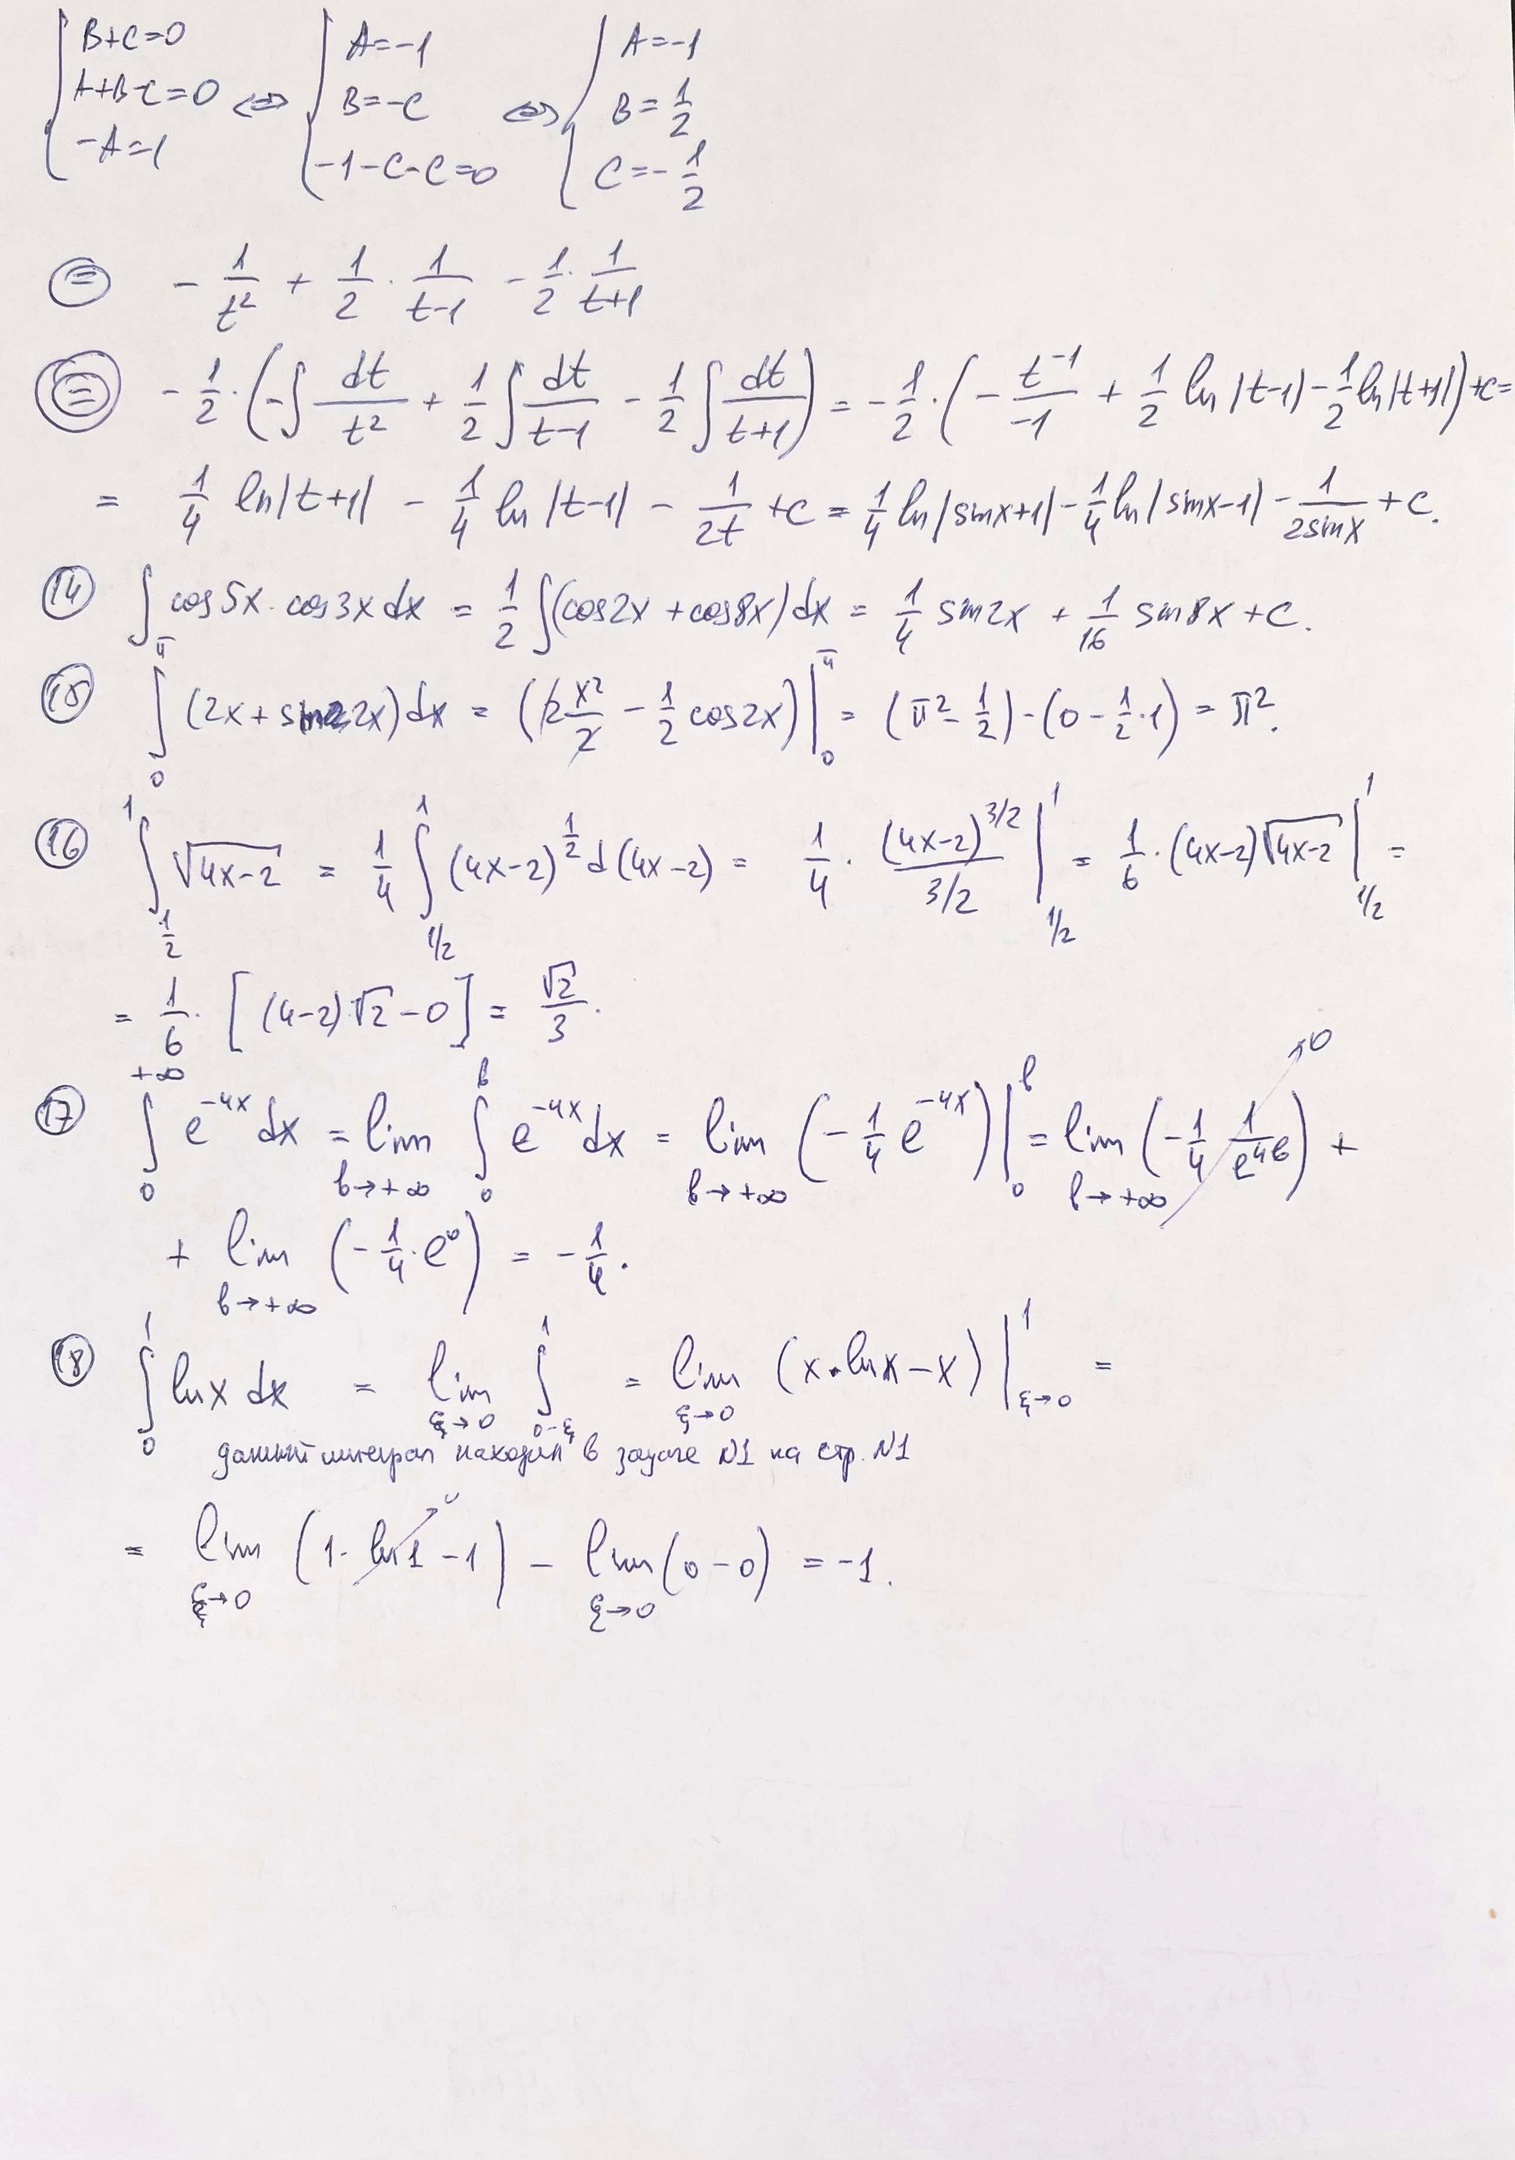 { B+C=0 { A=-1 { A=-1
A+B-C=0 <=> B=-C <=> B=1/2
-A=1 -1-C-C=0 C=-1/2
(=) - 1/t² + 1/2 · 1/(t-1) - 1/2 · 1/(t+1)
((=)) - 1/2 · (-∫ dt/t² + 1/2 ∫ dt/(t-1) - 1/2 ∫ dt/(t+1)) = - 1/2 · (- t⁻¹/-1 + 1/2 ln|t-1| - 1/2 ln|t+1|) + c =
= 1/4 ln|t+1| - 1/4 ln|t-1| - 1/2t + c = 1/4 ln|sinx+1| - 1/4 ln|sinx-1| - 1/2sinx + c.
(14) ∫ cos5x · cos3x dx = 1/2 ∫(cos2x + cos8x)dx = 1/4 sin2x + 1/16 sin8x + c.
(15) ∫₀^π (2x + sin2x)dx = (2 x²/2 - 1/2 cos2x)|₀^π = (π² - 1/2) - (0 - 1/2·1) = π².
(16) ∫_{1/2}^1 √(4x-2) = 1/4 ∫_{1/2}^1 (4x-2)^{1/2} d(4x-2) = 1/4 · (4x-2)^{3/2}/(3/2) |_{1/2}^1 = 1/6 · (4x-2)√(4x-2) |_{1/2}^1 =
= 1/6 · [(4-2)·√2 - 0] = √2/3.
(17) ∫₀^{+∞} e^{-4x}dx = lim_{b→+∞} ∫₀^b e^{-4x}dx = lim_{b→+∞} (- 1/4 e^{-4x})|₀^b = lim_{b→+∞} (- 1/4 1/e^{4b})→0 +
+ lim_{b→+∞} (- 1/4 · e⁰) = - 1/4.
(18) ∫₀¹ lnx dx = lim_{ξ→0} ∫_{0-ξ}^1 = lim_{ξ→0} (x·lnx - x)|_{ξ→0}^1 =
данный интеграл находил в задаче №1 на стр. №1
= lim_{ξ→0} (1·ln1→0 - 1) - lim_{ξ→0} (0-0) = -1.